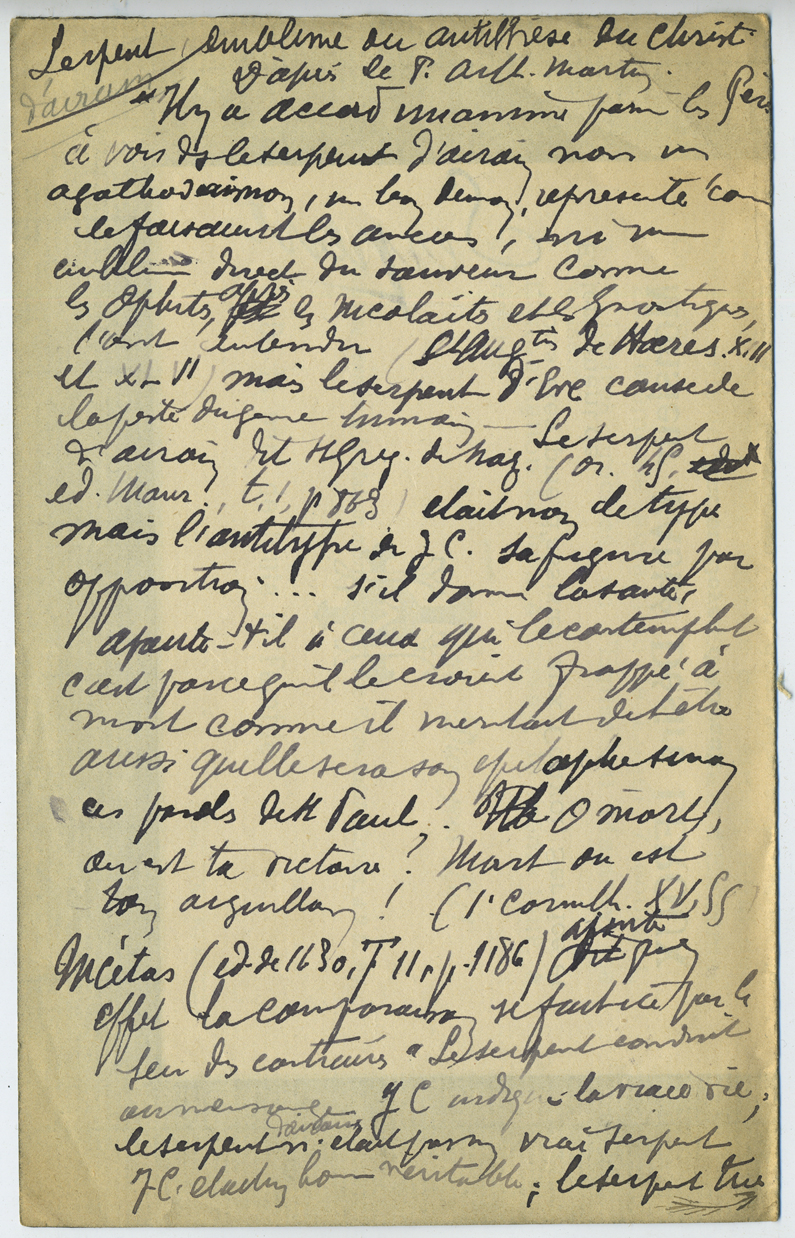 Serpent, emblème ou antithèse du Christ
d'airain
D'après le P. Arth. Martin.
"Il y a accord unanime parmi les Pères
à voir ds le serpent d'airain non un
agathodaimon, un bon demon, représenté com
le faisaient les anciens, ni un
emblème direct du Sauveur comme
les Ophites, après les Nicolaïtes et les Gnostiques,
l'ont entendu (St Augtin de Hæres. XVII
et XLVI) mais le serpent d'Eve cause de
la perte du genre humain – Le serpent
d'airain dit St Greg. de Naz. (or. 45,
ed. Maur., t. 1, p 868) était non le type
mais l'antitype de J C. Sa figure par
opposition ... s'il donne la santé,
ajoute-t-il à ceux qui le contemplent
c'est parce qu'il le croient frappé à
mort comme il meritait de l'être
aussi quelle sera son epitaphe sinon
ces paroles de St Paul. O mort,
ou est ta victoire? Mort ou est
ton aiguillon! (1. Corinth. XV, 55
Nicétas (ed. de 1630, T 11, p. 1186) ajoute qu'en
effet la comparaison se justifie par le
sens des contraires "Le serpent conduit
au mensonge J C indique la vraie vie;
le serpent d'airain n'etait pas un vrai serpent
J-C. etait un homme véritable; le serpent tue